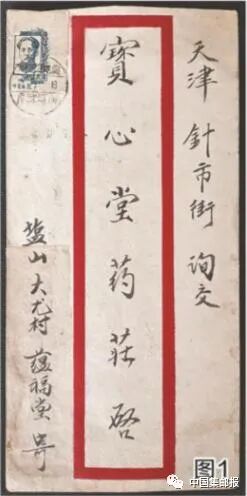 天津 針市街 询交
寳心堂药莊 啓
盐山大尤村 蕴福堂 寄
图1
中国集邮报